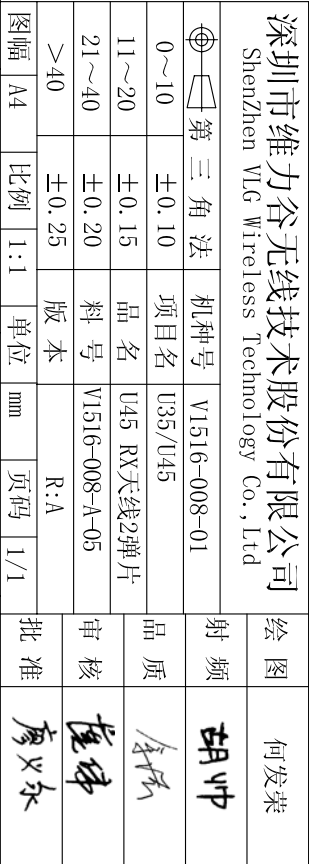 深圳市维力谷无线技术股份有限公司
ShenZhen VLG Wireless Technology Co.,Ltd
第三角法 机种号 V1516-008-01
0～10 ±0.10 项目名 U35/U45
11～20 ±0.15 品名 U45 RX天线2弹片
21～40 ±0.20 料号 V1516-008-A-05
>40 ±0.25 版本 R:A
图幅 A4 比例 1:1 单位 mm 页码 1/1
绘图 何发荣
射频 胡帅
品质
审核
批准 廖义永